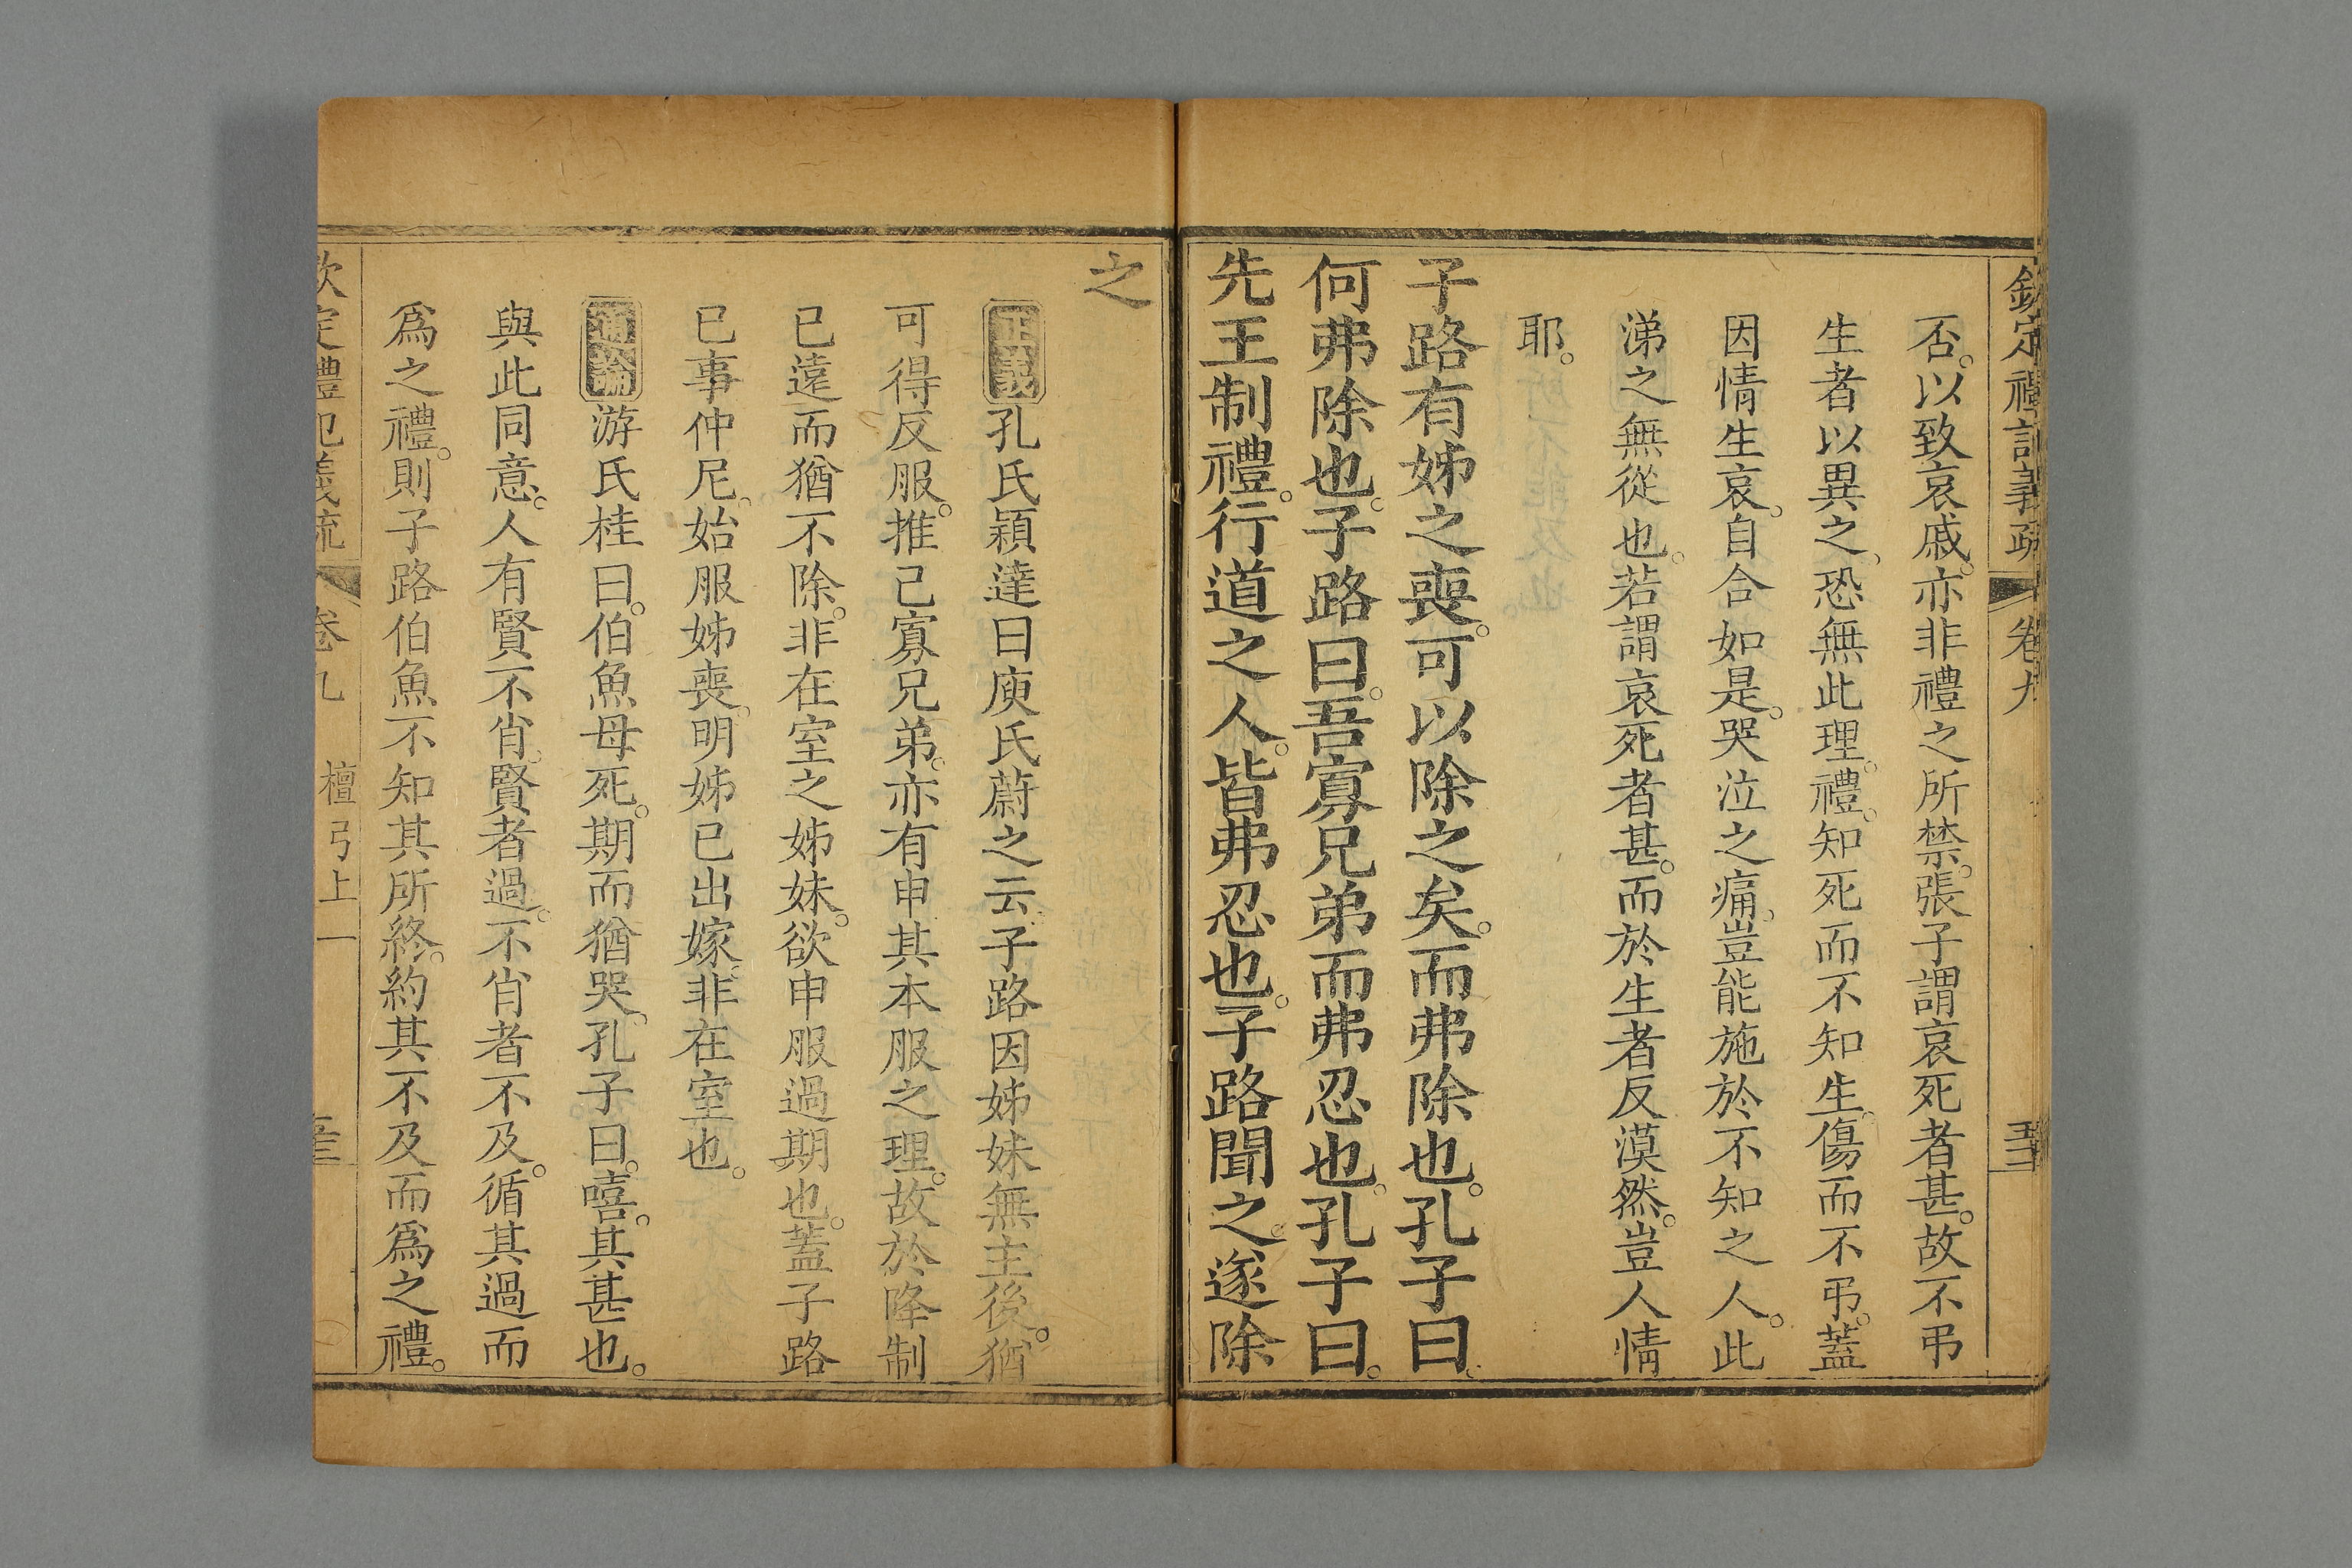 欽定禮記義疏 卷九 
否。以致哀戚。亦非禮之所禁。張子謂哀死者甚。故不弔
生者以異之、恐無此理。禮。知死而不知生。傷而不弔。蓋
因情生哀。自合如是。哭泣之痛、豈能施於不知之人。此
涕之無從也。若謂哀死者甚。而於生者反漠然。豈人情
耶。
子路有姊之喪。可以除之矣。而弗除也。孔子曰。
何弗除也。子路曰。吾寡兄弟而弗忍也。孔子曰。
先王制禮。行道之人。皆弗忍也。子路聞之。遂除
之
正義孔氏穎達曰庾氏蔚之云。子路因姊妹無主後。猶
可得反服。推己寡兄弟。亦有申其本服之理。故於降制
已遠而猶不除。非在室之姊妹。欲申服過期也。蓋子路
已事仲尼、始服姊喪。明姊已出嫁。非在室也。
通論游氏桂曰。伯魚母死。期而猶哭、孔子曰。嘻。其甚也。
與此同意。人有賢不肖。賢者過。不肖者不及。循其過而
爲之禮。則子路伯魚不知其所終。約其不及而爲之禮。
欽定禮記義疏 卷九 檀弓上一